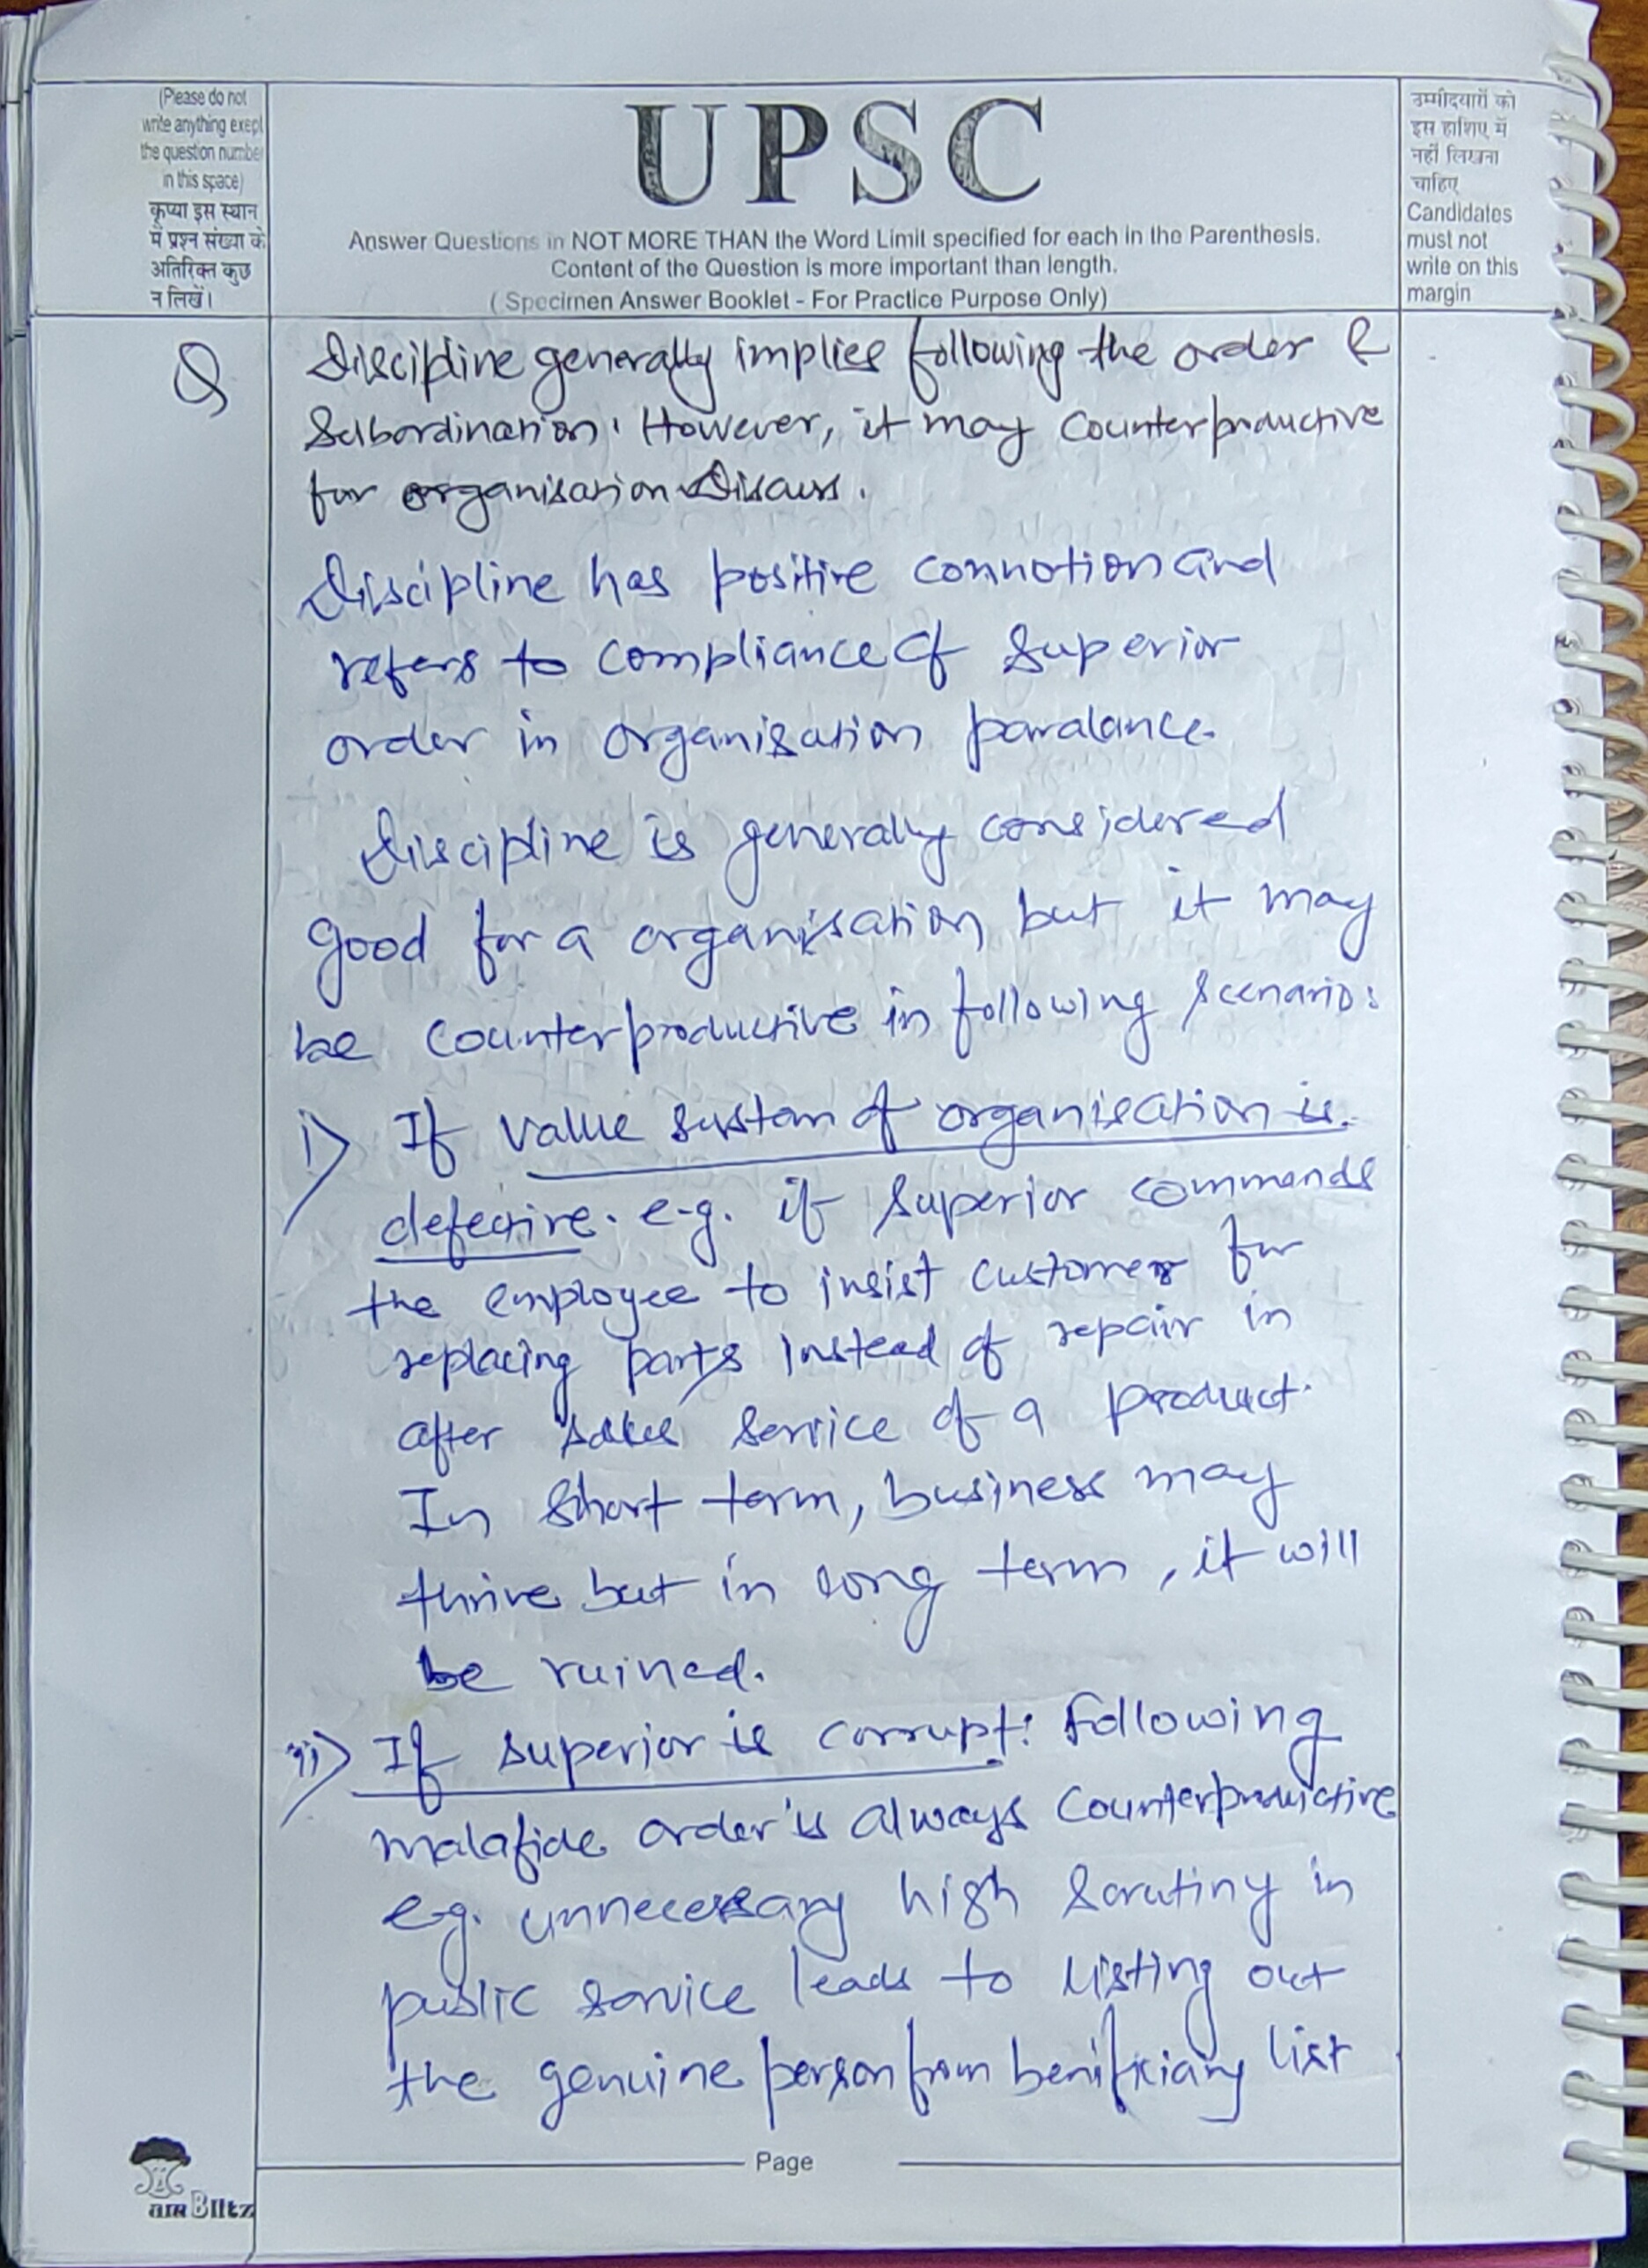 (Please do not
write anything exept
the question number
in this space)
कृप्या इस स्थान
में प्रश्न संख्या के
अतिरिक्त कुछ
न लिखें।
UPSC
Answer Questions in NOT MORE THAN the Word Limit specified for each in the Parenthesis.
Content of the Question is more important than length.
( Specimen Answer Booklet - For Practice Purpose Only)
उम्मीदवारों को
इस हाशिए में
नहीं लिखना
चाहिए
Candidates
must not
write on this
margin
Q
Discipline generally implies following the order &
Subordination. However, it may counterproductive
for organisation Discuss.
Discipline has positive connotion and
refers to compliance of superior
order in organisation paralance.
Discipline is generally considered
good for a organisation but it may
be counterproductive in following scenario:
i) If value systam of organisation is
defective. e.g. if superior commands
the employee to insist customer for
replacing parts instead of repair in
after sales service of a product.
In short term, business may
thrive but in long term, it will
be ruined.
ii) If superior is corrupt: Following
malafide order is always counterproductive
e.g. unnecessary high scrutiny in
public service leads to listing out
the genuine person from benificiary list
Page
am Blitz